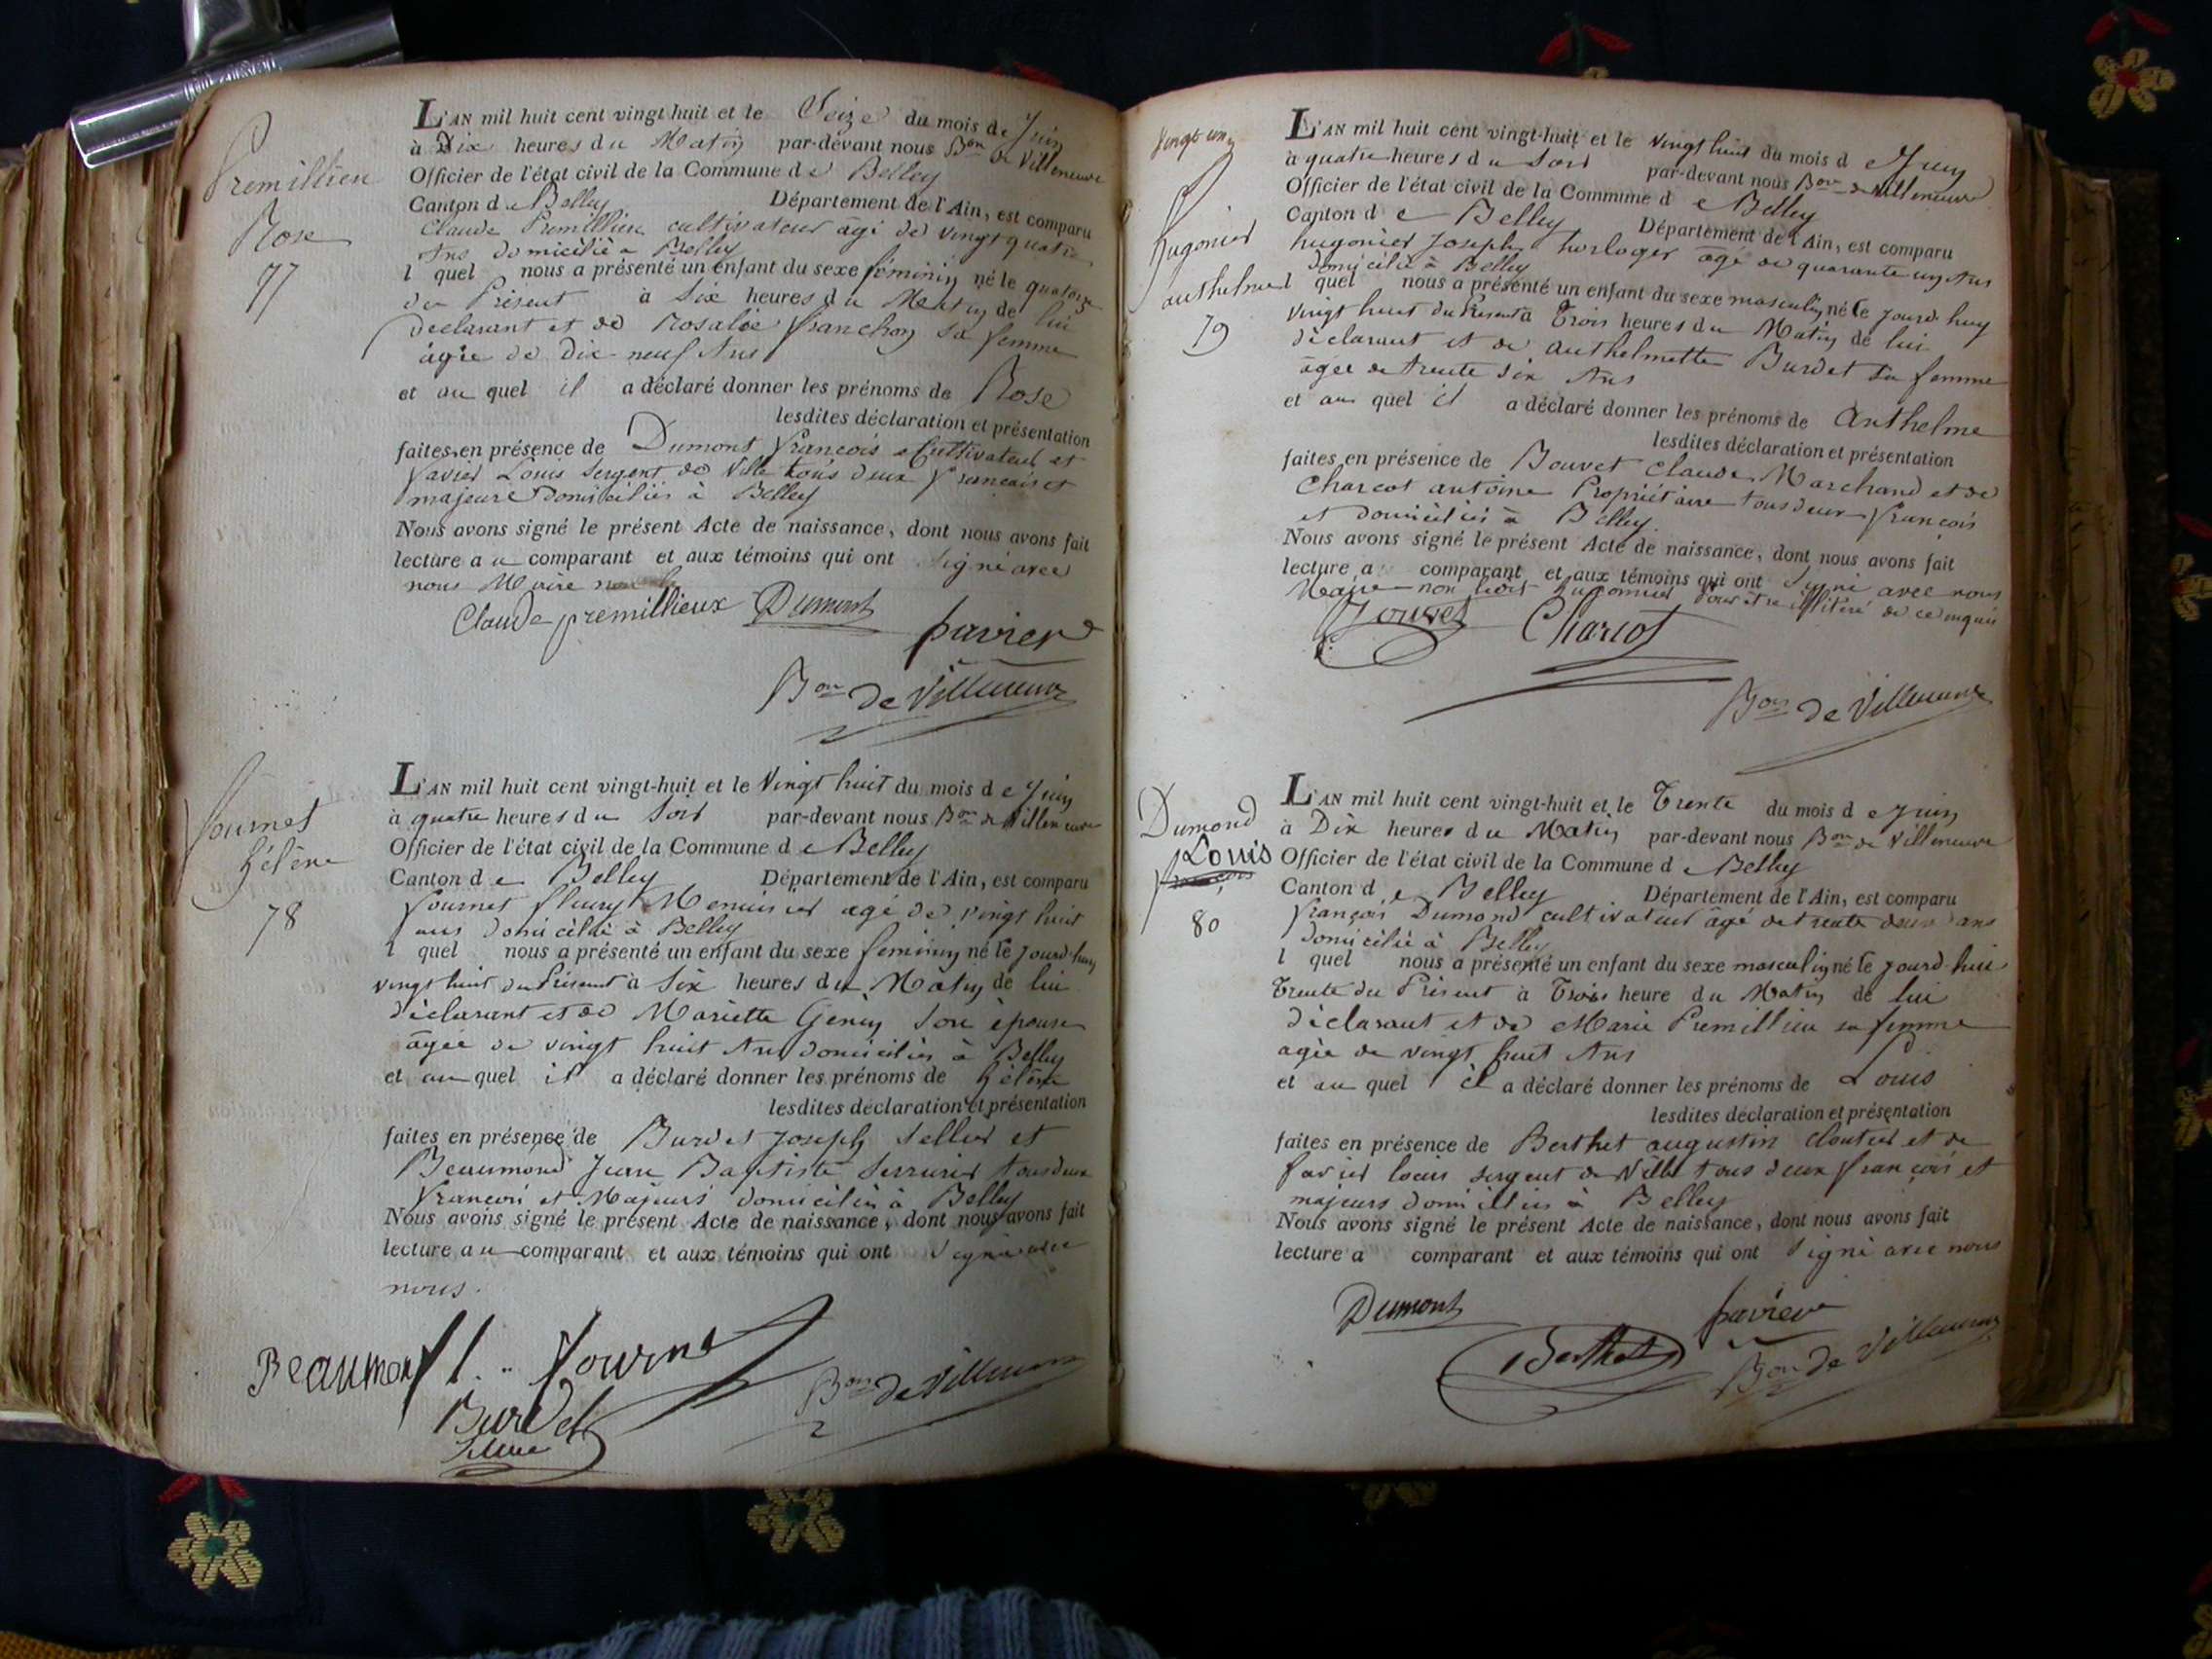 Premillieu
Rose
77
L'AN mil huit cent vingt-huit et le Seize du mois de Juin
à Dix heures du Matin par-devant nous Bon de Villeneuve
Officier de l'état civil de la Commune de Belley
Canton de Belley Département de l'Ain, est comparu
Claude Premillieu cultivateur âgé de vingt quatre
Ans domicilié à Belley
lequel nous a présenté un enfant du sexe féminin né le quatorze
du Présent à Six heures du Matin de lui
déclarant et de Rosalie franchon sa femme
âgée de Dix neuf Ans
et au quel il a déclaré donner les prénoms de Rose
lesdites déclaration et présentation
faites en présence de Dumont françois Cultivateur et
favier Louis Sergent de Ville tous deux français et
majeurs Domiciliés à Belley
Nous avons signé le présent Acte de naissance, dont nous avons fait
lecture au comparant et aux témoins qui ont signé avec
nous Maire
Claude premillieux Dumont
favier
Bon de Villeneuve
fournet
hélène
78
L'AN mil huit cent vingt-huit et le Vingt huit du mois de Juin
à quatre heures du Soir par-devant nous Bon de Villeneuve
Officier de l'état civil de la Commune de Belley
Canton de Belley Département de l'Ain, est comparu
fournet fleury Menuisier agé de vingt huit
ans domicilié à Belley
lequel nous a présenté un enfant du sexe feminin né le jourd-huy
vingt huit du Présent à Six heures du Matin de lui
déclarant et de Mariette Genin son épouse
âgée de vingt huit Ans domiciliés à Belley
et au quel il a déclaré donner les prénoms de hélène
lesdites déclaration et présentation
faites en présence de Burdet Joseph Sellier et
Beaumond Jean Baptiste Serrurier tous deux
françois et Majeurs domiciliés à Belley
Nous avons signé le présent Acte de naissance, dont nous avons fait
lecture au comparant et aux témoins qui ont signé avec
nous.
Beaumont fl.. fournet
Burdet
Bon de Villeneuve
Vingt un
hugonier
anthelme
79
L'AN mil huit cent vingt-huit et le vingt huit du mois de Juin
à quatre heures du Soir par-devant nous Bon de Villeneuve
Officier de l'état civil de la Commune de Belley
Canton de Belley Département de l'Ain, est comparu
hugonier Joseph horloger âgé de quarante un Ans
domicilié à Belley
lequel nous a présenté un enfant du sexe masculin né le jourd-huy
vingt huit du Présent à Trois heures du Matin de lui
déclarant et de anthelmette Burdet sa femme
âgée de trente six Ans
et au quel il a déclaré donner les prénoms de Anthelme
lesdites déclaration et présentation
faites en présence de Bouvet Claude Marchand et de
Charcot antoine Propriétaire tous deux françois
et domiciliés à Belley.
Nous avons signé le présent Acte de naissance, dont nous avons fait
lecture a comparant et aux témoins qui ont Signé avec nous
Maire non ledit hugonnier pour être illitéré de ce enquis
Bouvet Charcot
Bon de Villeneuve
Dumond
Louis
françois
80
L'AN mil huit cent vingt-huit et le Trente du mois de Juin
à Dix heures du Matin par-devant nous Bon de Villeneuve
Officier de l'état civil de la Commune de Belley
Canton de Belley Département de l'Ain, est comparu
françois Dumond cultivateur âgé de trente deux ans
domicilié à Belley
lequel nous a présenté un enfant du sexe masculin né le jourd-hui
Trente du Présent à Trois heure du Matin de lui
déclarant et de Marie Premillieu sa femme
agée de vingt huit Ans
et au quel il a déclaré donner les prénoms de Louis
lesdites déclaration et présentation
faites en présence de Berthet augustin cloutier et de
favier louis sergent de Ville tous deux françois et
majeurs domiciliés à Belley
Nous avons signé le présent Acte de naissance, dont nous avons fait
lecture a comparant et aux témoins qui ont signé avec nous
Dumont favier
Berthet Bon de Villeneuve